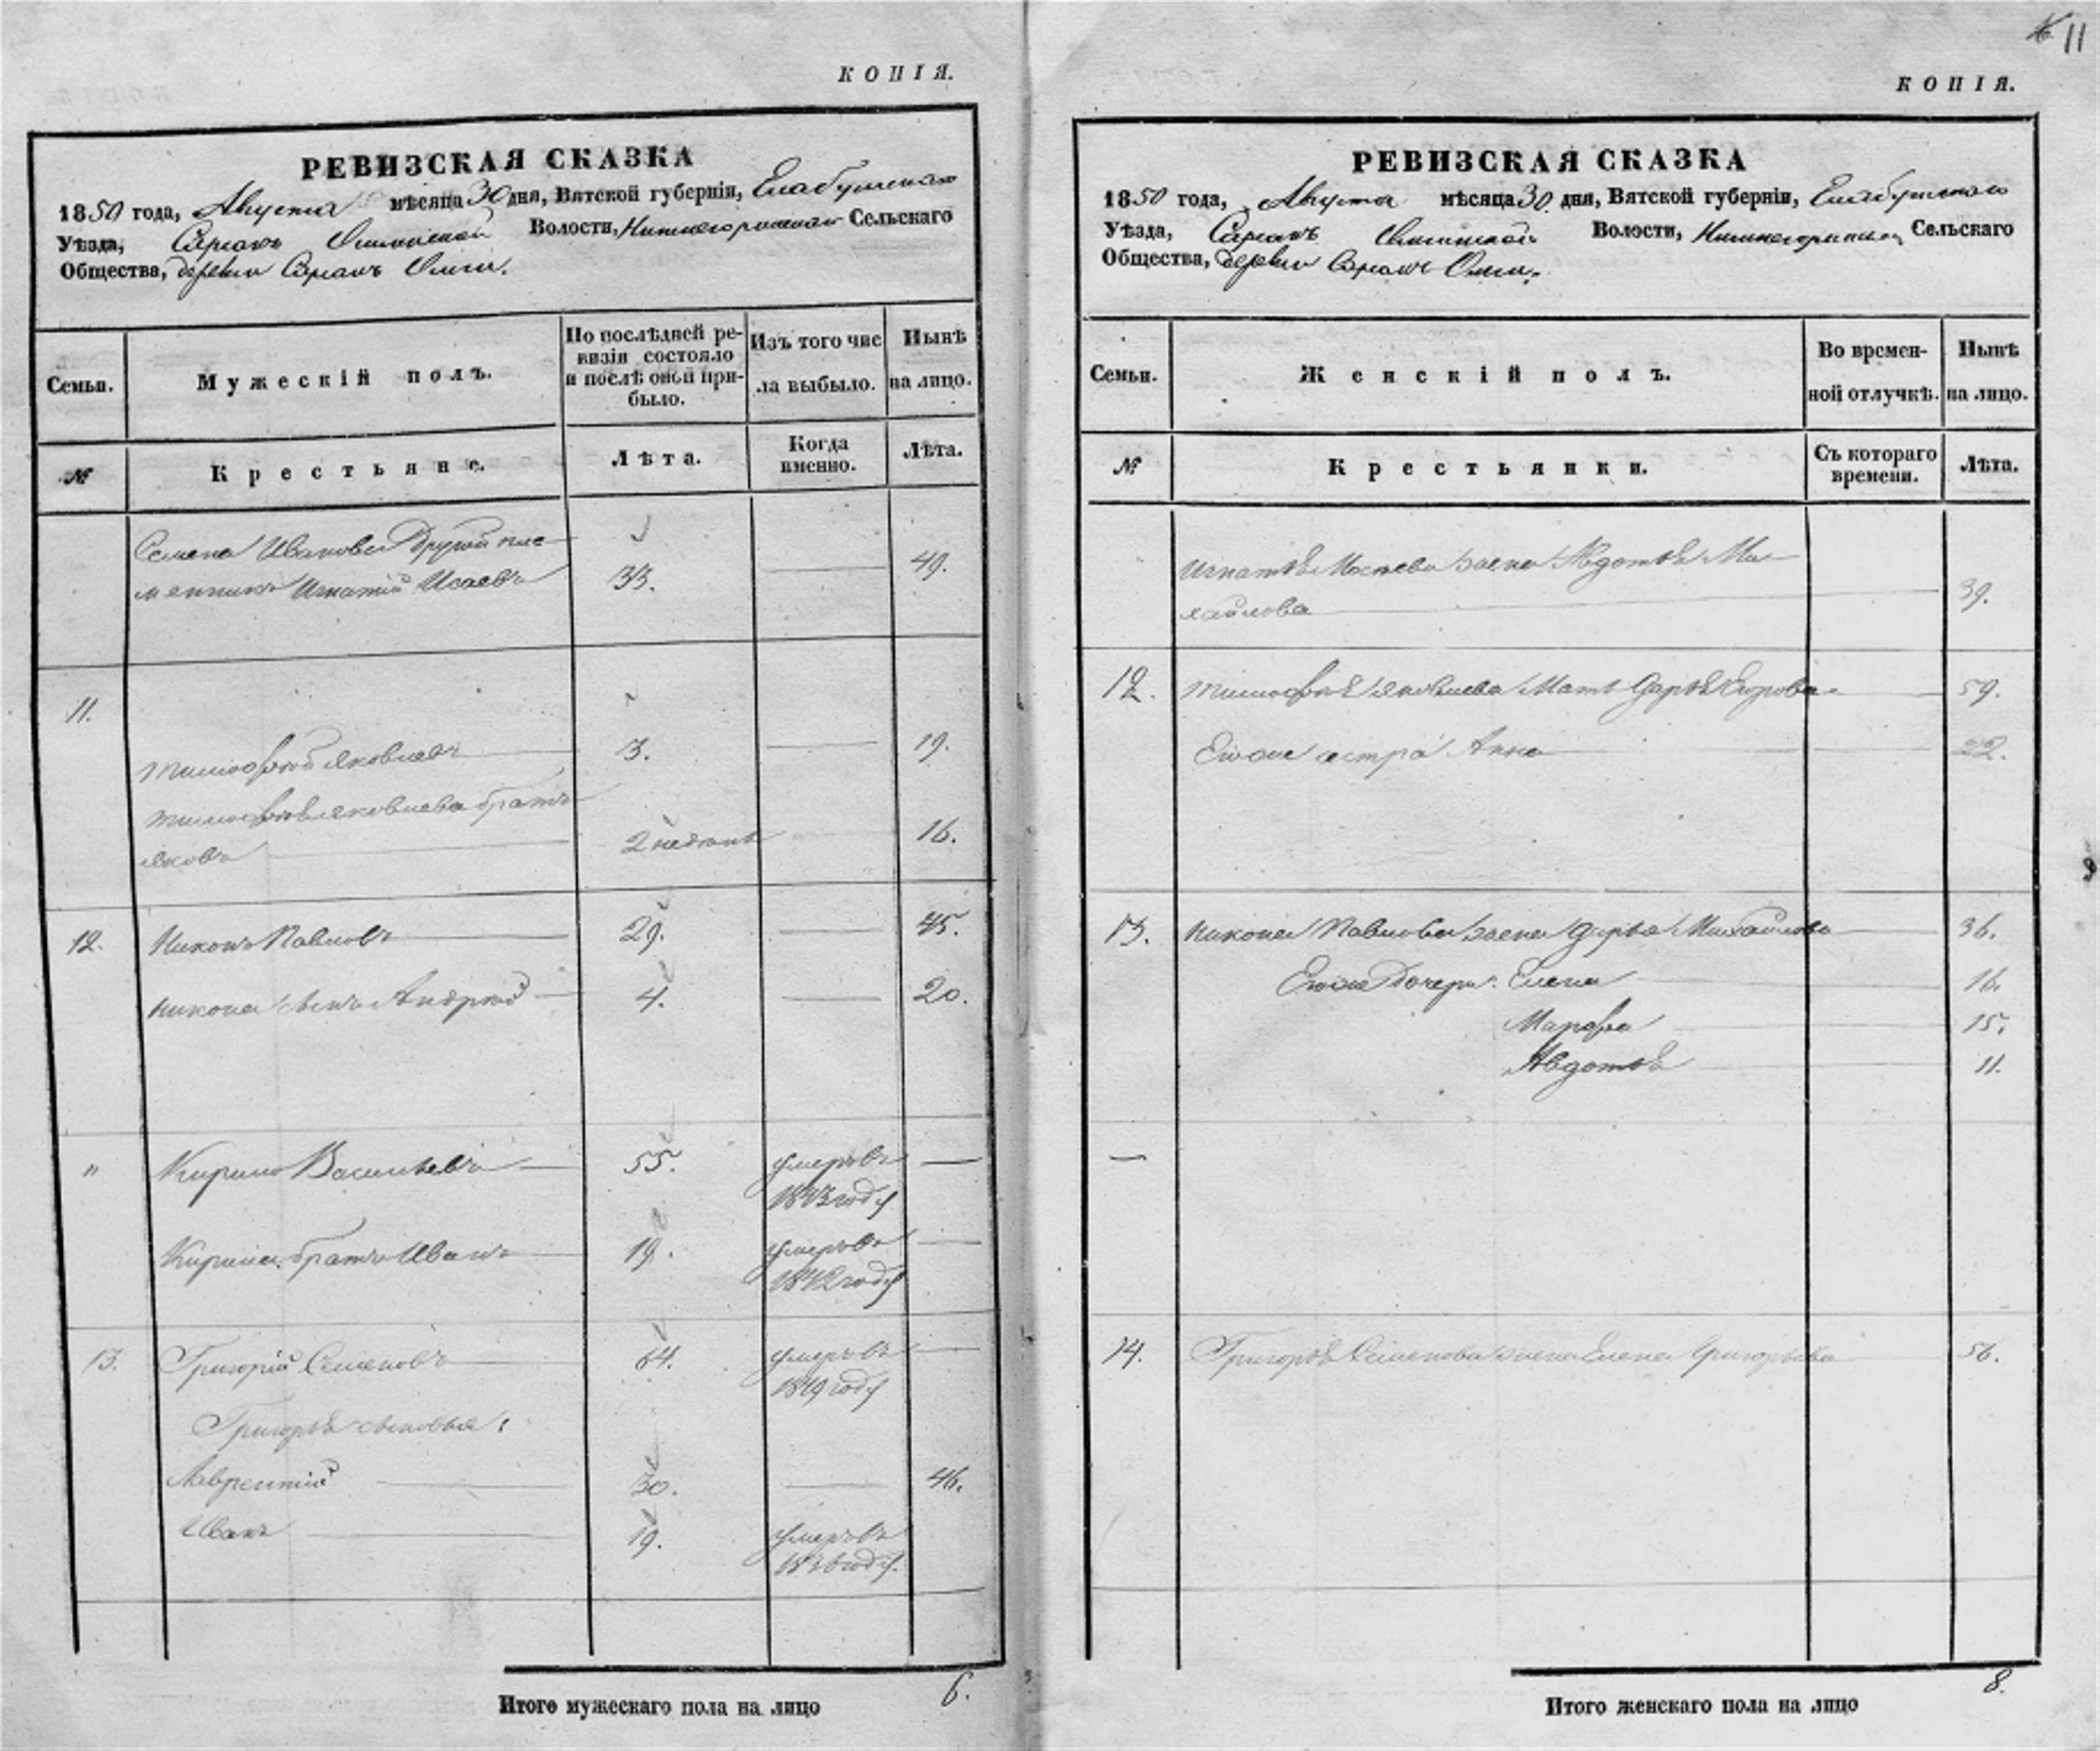 КОПІЯ.
РЕВИЗСКАЯ СКАЗКА
1850 года, Августа мѣсяца 30 дня, Вятской губерніи, Елабужскаго
Уѣзда, Волости, Сельскаго
Общества, деревни
Семьи.
Мужескій полъ.
По послѣдней ре-
визіи состояло
и послѣ оной при-
было.
Изъ того чис
ла выбыло.
Нынѣ
на лицо.
№
Крестьяне.
Лѣта.
Когда
именно.
Лѣта.
Семена Иванова другой пле-
мянникъ Игнатій Исаевъ 33. 49.
11.
Тимофей Яковлевъ 3. 19.
Тимофея Яковлева братъ
Яковъ 2 недѣль 16.
12. Никонъ Павловъ 29. 45.
Никона сынъ Андрей 4. 20.
" Кирило Васильевъ 55. умеръ въ
1843 году
Кирила братъ Иванъ 19. умеръ въ
1842 году
13. Григорій Семеновъ 64. умеръ въ
1849 году
Григорья сыновья:
Лаврентій 30. 46.
Иванъ 19. умеръ въ
году
Итого мужескаго пола на лицо 6.
11
КОПІЯ.
РЕВИЗСКАЯ СКАЗКА
1850 года, Августа мѣсяца 30 дня, Вятской губерніи, Елабужскаго
Уѣзда, Волости, Сельскаго
Общества, деревни
Семьи.
Женскій полъ.
Во времен-
ной отлучкѣ.
Нынѣ
на лицо.
№
Крестьянки.
Съ котораго
времени.
Лѣта.
Игнатья жена Авдотья Ми-
хайлова 39.
12. Тимофея Яковлева мать Дарья Егорова 59.
Его же сестра Анна 22.
13. Никона Павлова жена Дарья Михайлова 36.
Его же дочери: Елена 16.
Марфа 15.
Авдотья 11.
14. Григорья Семенова жена Елена Григорьева 56.
Итого женскаго пола на лицо 8.